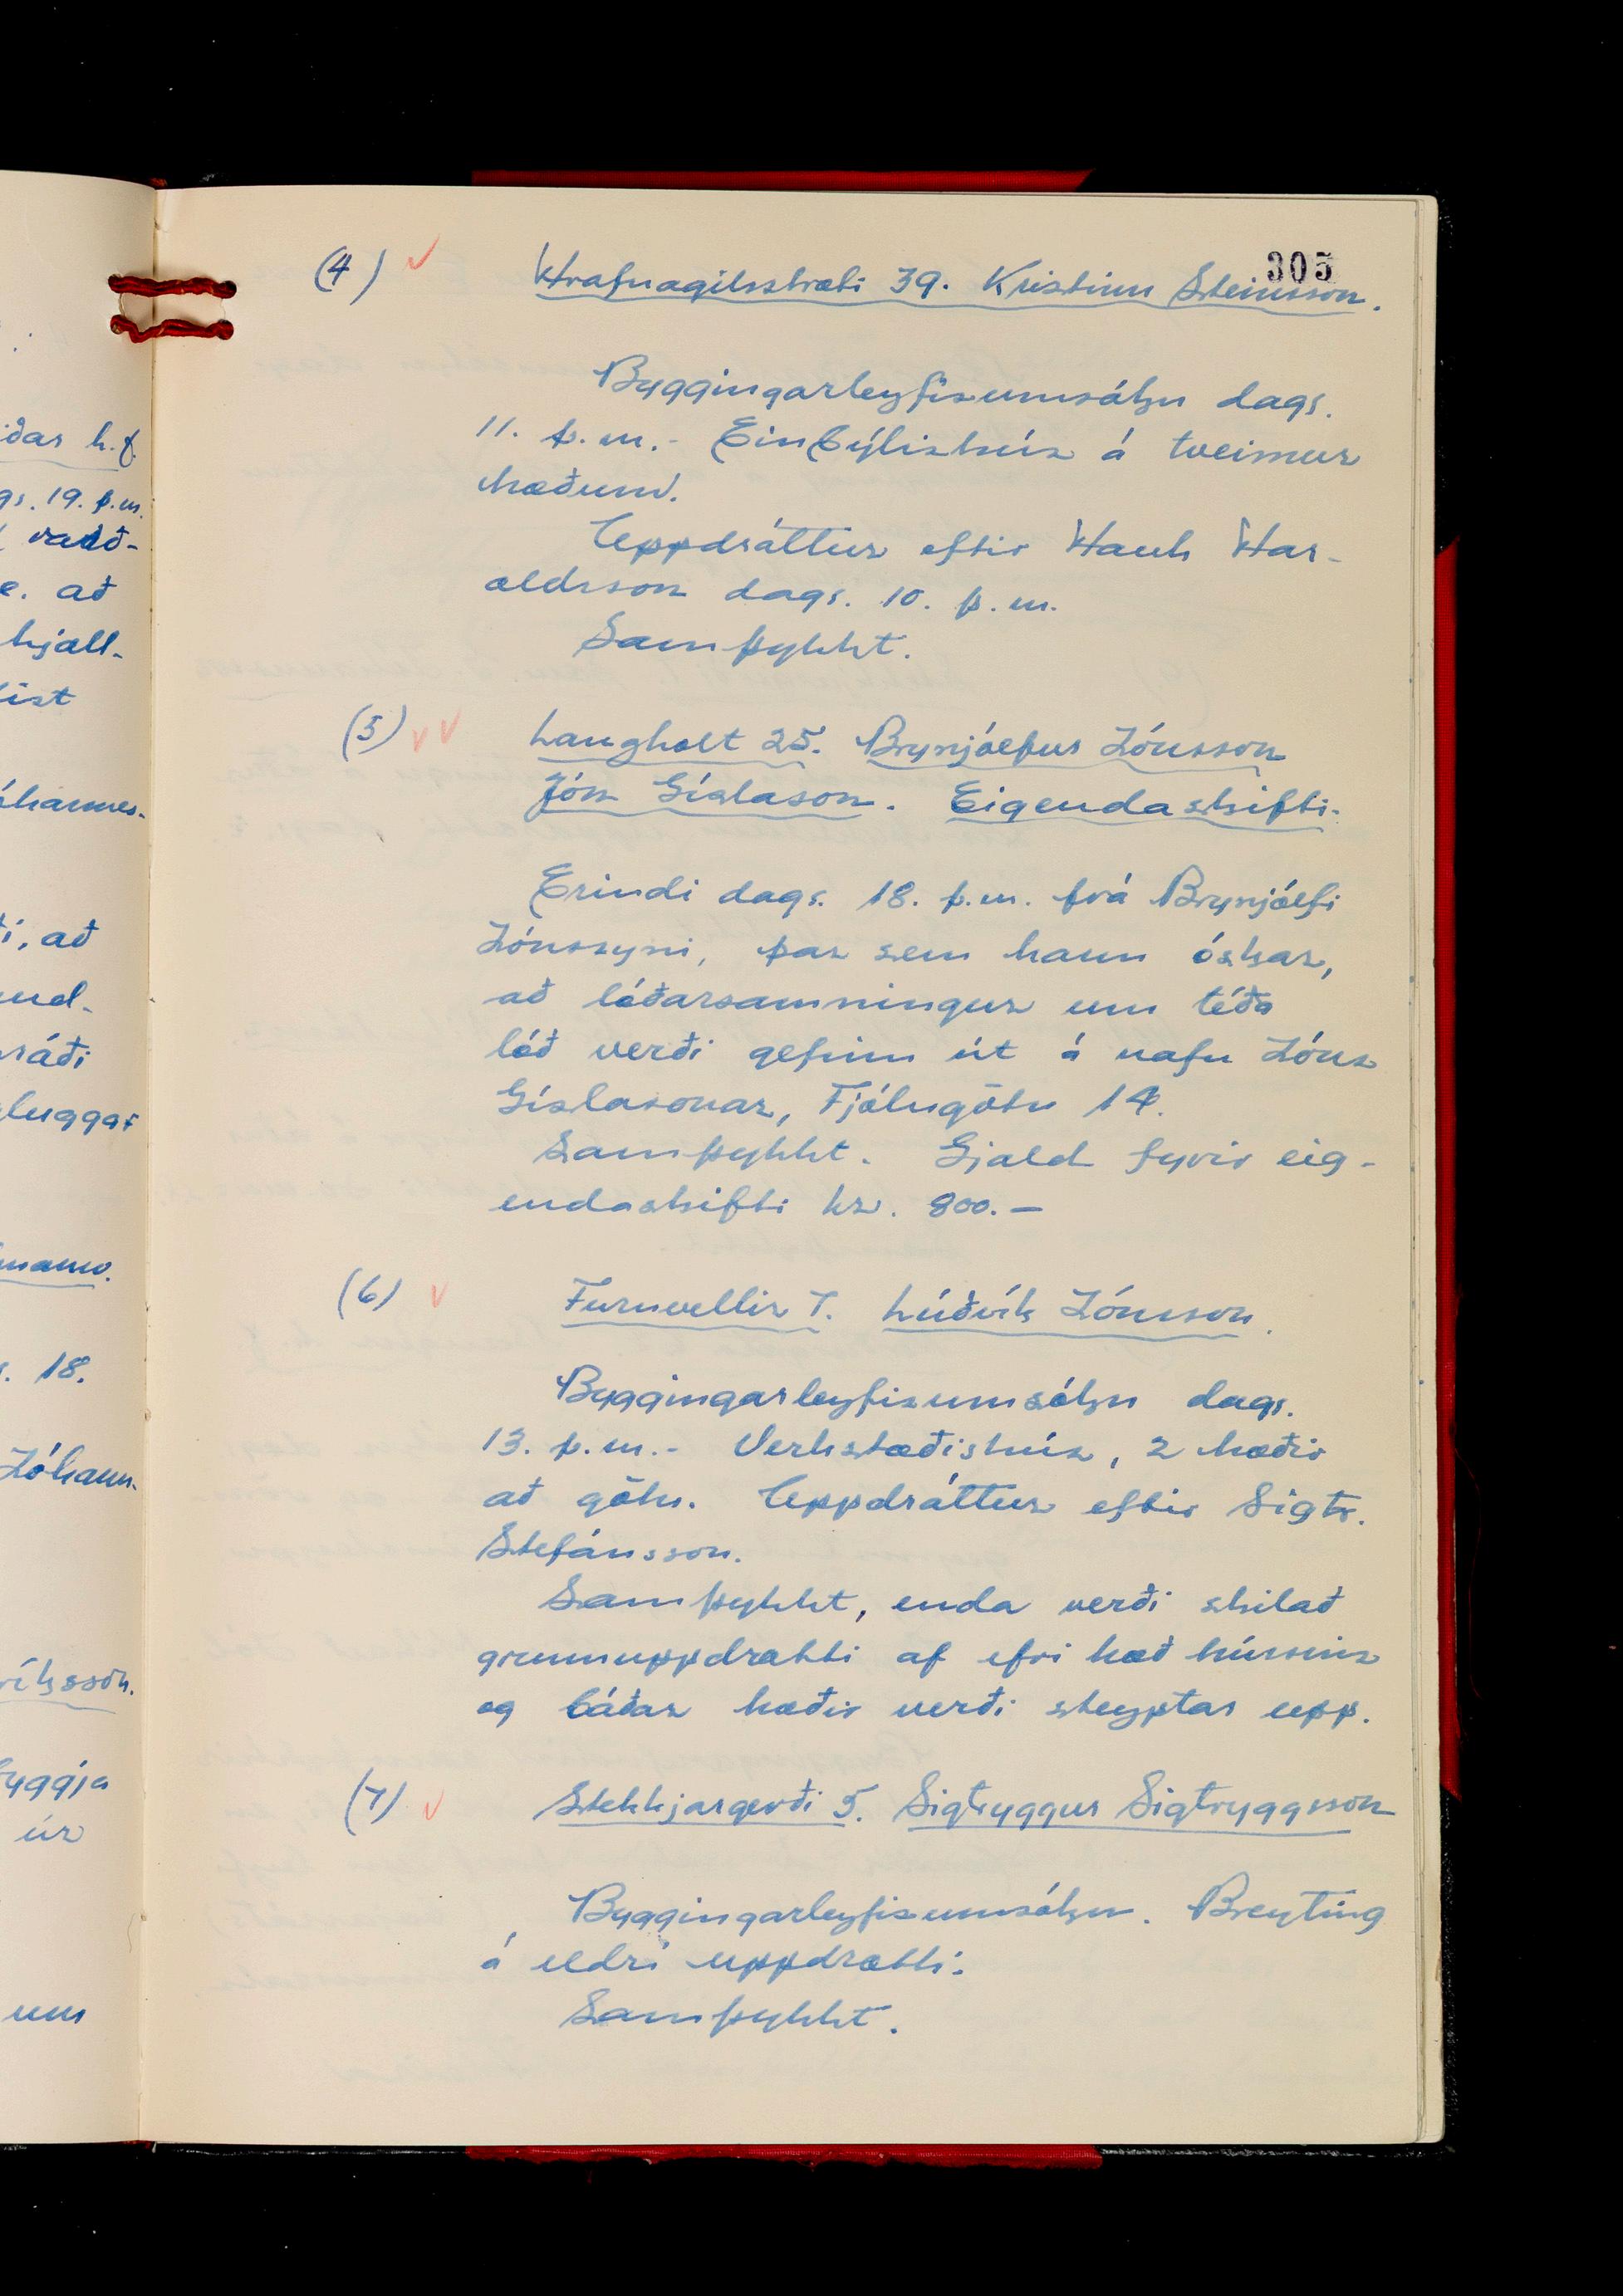 305
(4) Hrafnagilsstræti 39. Kristinn Steinsson.
Byggingarleyfisumsókn dags.
11. þ.m.- Einbýlishús á tveimur
hæðum.
Uppdráttur eftir Hauk Har-
aldsson dags. 10. þ.m.
Samþykkt.
(5) Langholt 25. Brynjólfur Jónsson
Jón Gíslason. Eigendaskifti.
Erindi dags. 18. þ.m. frá Brynjólfi
Jónssyni, þar sem hann óskar,
að lóðarsamningur um téða
lóð verði gefinn út á nafn Jóns
Gíslasonar, Fjólugötu 14.
Samþykkt. Gjald fyrir eig-
endaskifti kr. 800.-
(6) Furuvellir 7. Lúðvík Jónsson.
Byggingarleyfisumsókn dags.
13. þ.m.- Verkstæðishús, 2 hæðir
að götu. Uppdráttur eftir Sigtr.
Stefánsson.
Samþykkt, enda verði skilað
grunnuppdrætti af efri hæð hússins
og báðar hæðir verði steyptar upp.
(7) Stekkjargerði 5. Sigtryggur Sigtryggsson
Byggingarleyfisumsókn. Breyting
á eldri uppdrætti.
Samþykkt.
iðar h.f.
gs. 19. þ.m.
e. að
kjall-
ist
óhannes-
í, að
und-
ráði
luggar
mann.
s. 18.
Jóhann-
ríksson.
yggja
úr
um